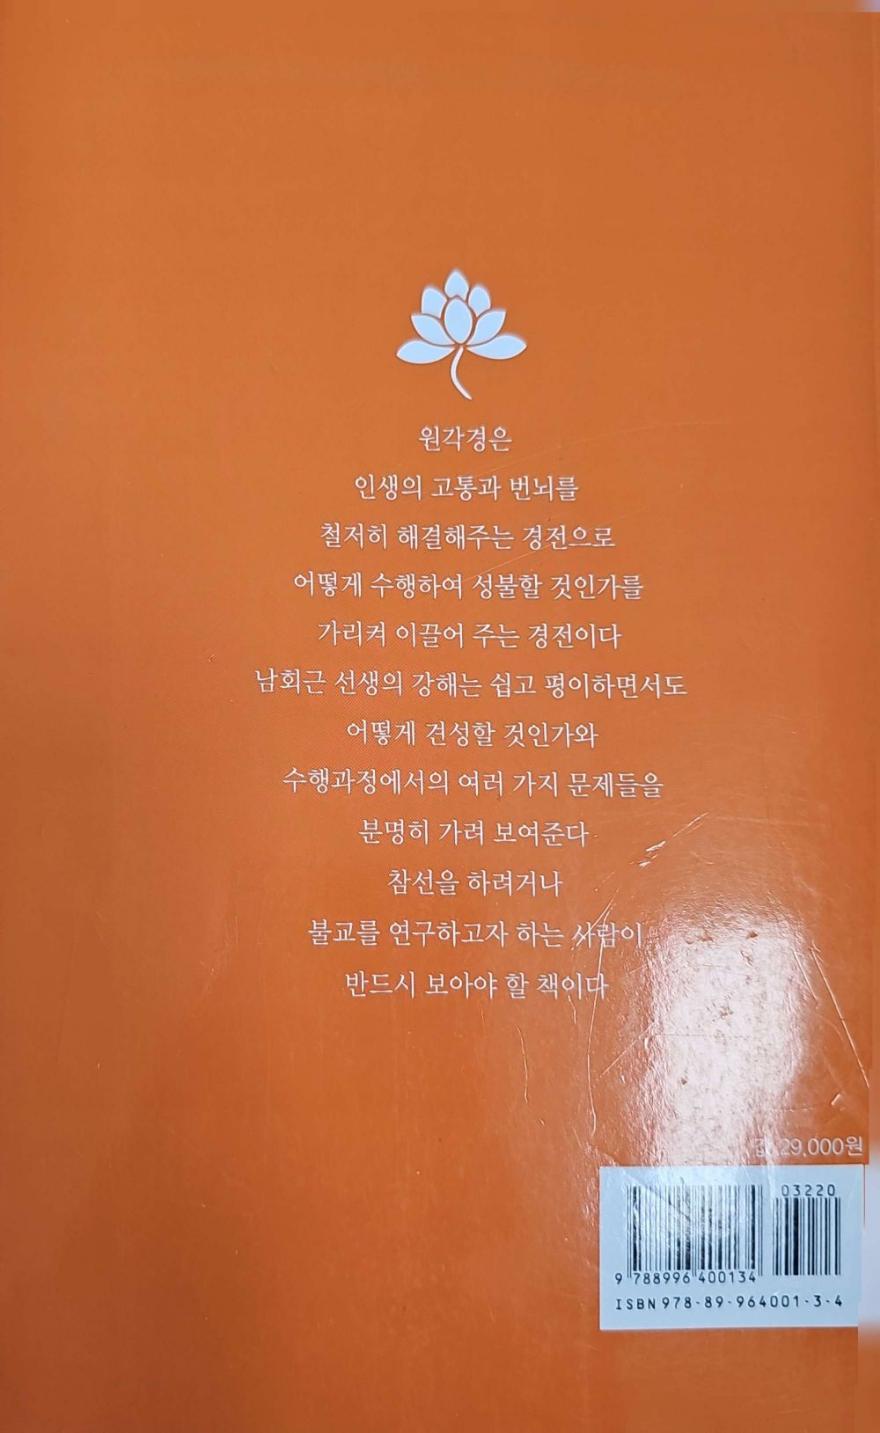 원각경은
인생의 고통과 번뇌를
철저히 해결해주는 경전으로
어떻게 수행하여 성불할 것인가를
가리켜 이끌어 주는 경전이다
남회근 선생의 강해는 쉽고 평이하면서도
어떻게 견성할 것인가와
수행과정에서의 여러 가지 문제들을
분명히 가려 보여준다
참선을 하려거나
불교를 연구하고자 하는 사람이
반드시 보아야 할 책이다
값 29,000원
03220
9 788996 400134
ISBN 978-89-964001-3-4